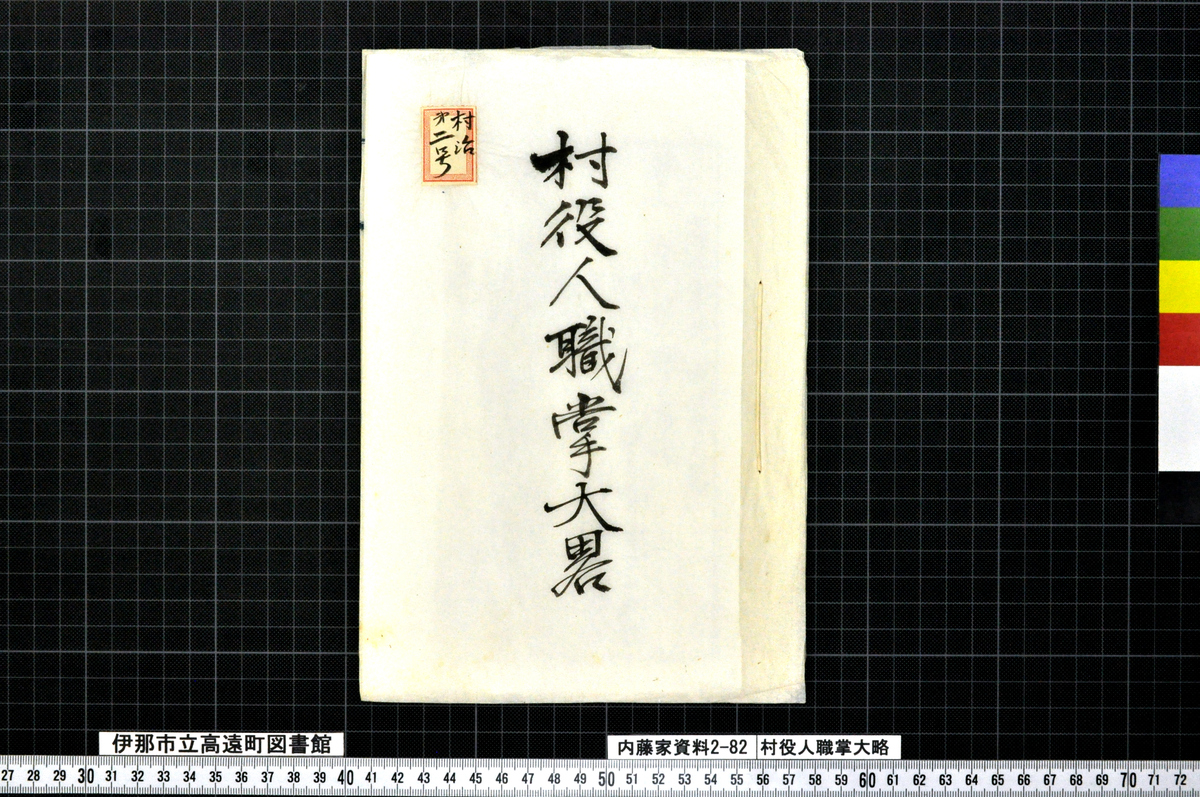 村役人職掌大畧
村治
第二号
伊那市立高遠町図書館
内藤家資料2-82 村役人職掌大略
27 28 29 30 31 32 33 34 35 36 37 38 39 40 41 42 43 44 45 46 47 48 49 50 51 52 53 54 55 56 57 58 59 60 61 62 63 64 65 66 67 68 69 70 71 72